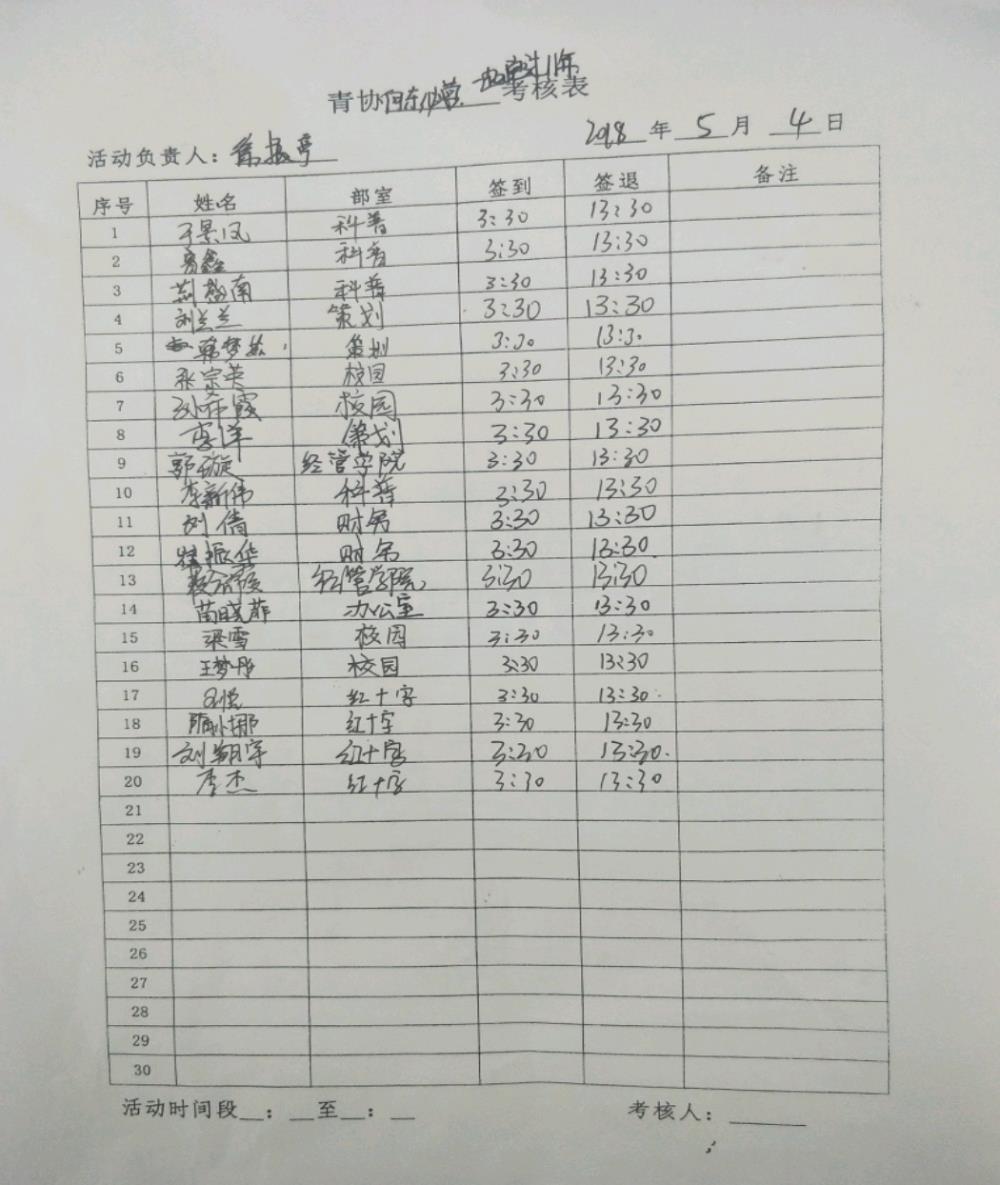 青协 考核表
2018 年 5 月 4 日
活动负责人：
序号 姓名 部室 签到 签退 备注
1 于景凤 科普 3:30 13:30
2 鑫 科普 3:30 13:30
3 南 科普 3:30 13:30
4 刘兰兰 策划 3:30 13:30
5 策划 3:30 13:30
6 张宗英 校园 3:30 13:30
7 刘希霞 校园 3:30 13:30
8 李洋 策划 3:30 13:30
9 郭璇 经管学院 3:30 13:30
10 李新伟 科普 3:30 13:30
11 刘倩 财务 3:30 13:30
12 振华 财务 3:30 13:30
13 经管学院 3:30 13:30
14 苗晓菲 办公室 3:30 13:30
15 梁雪 校园 3:30 13:30
16 王梦丹 校园 3:30 13:30
17 悦 红十字 3:30 13:30
18 娜 红十字 3:30 13:30
19 刘翔宇 红十字 3:30 13:30
20 李杰 红十字 3:30 13:30
21
22
23
24
25
26
27
28
29
30
活动时间段__：__至__：__ 考核人：